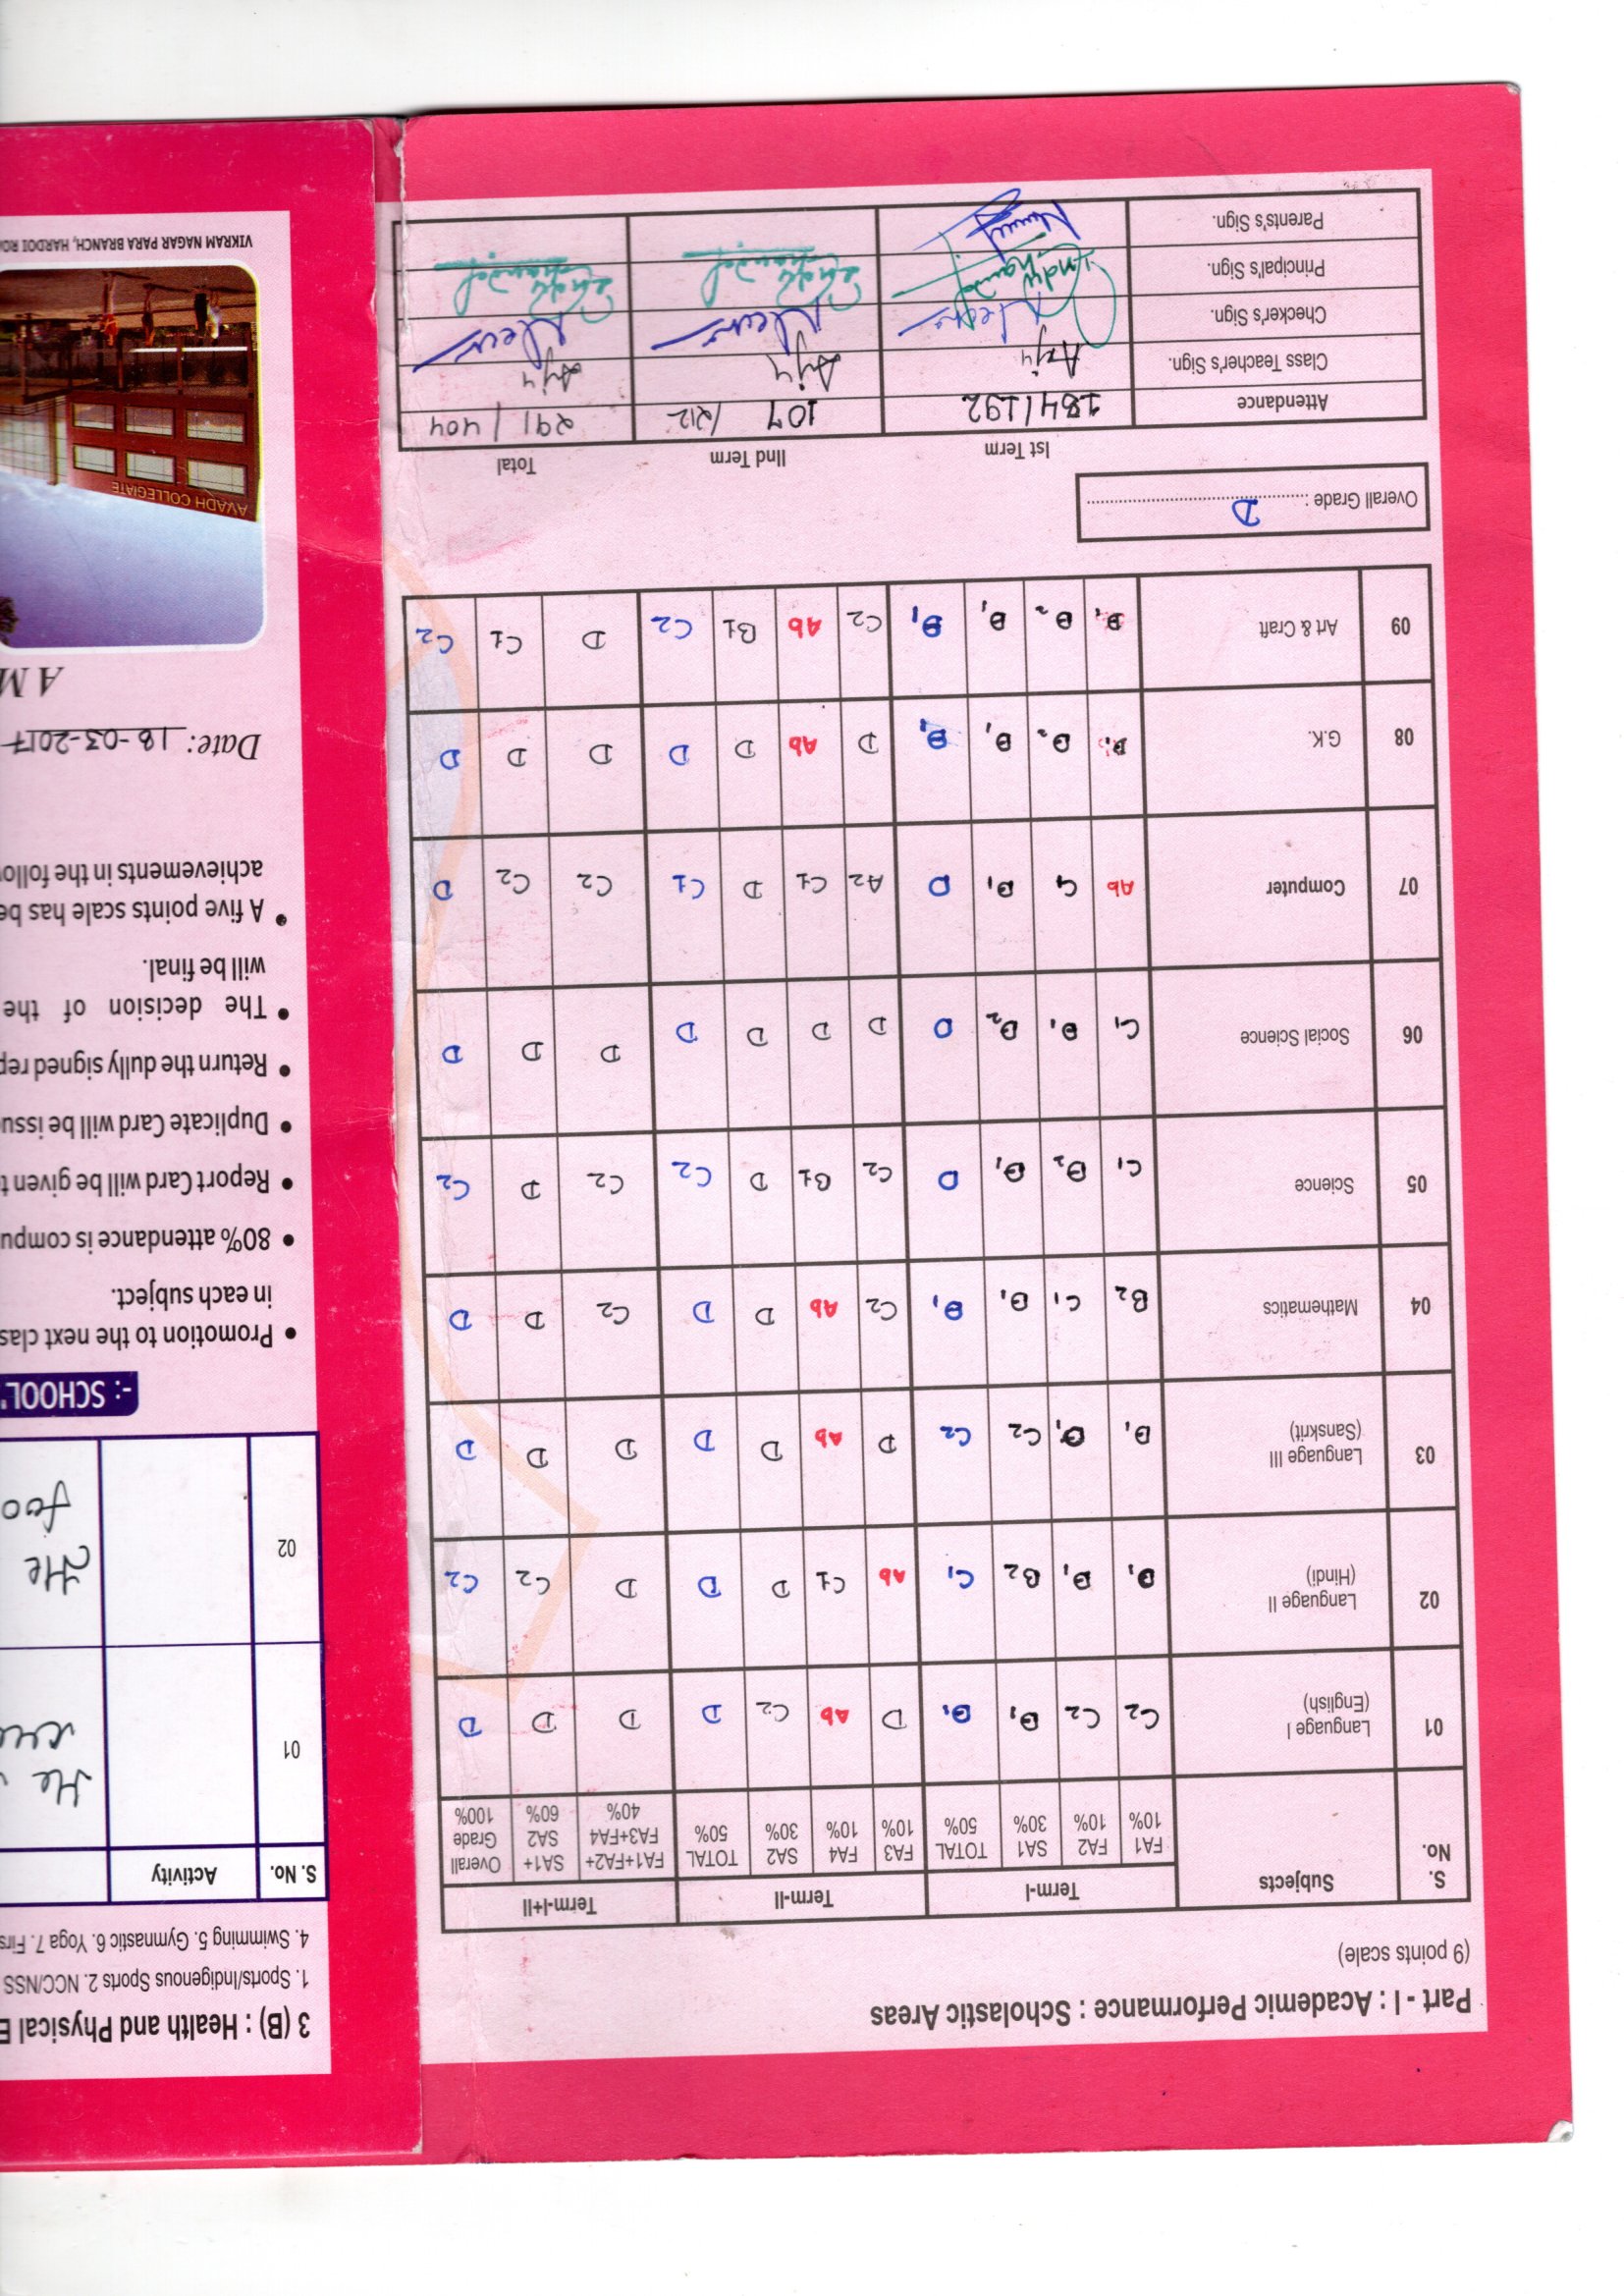 Part - I : Academic Performance : Scholastic Areas
(9 points scale)
S. No. Subjects Term-I Term-II Term-I+II
FA1 10% FA2 10% SA1 30% TOTAL 50% FA3 10% FA4 10% SA2 30% TOTAL 50% FA1+FA2+ FA3+FA4 40% SA1+ SA2 60% Overall Grade 100%
01 Language I (English) C2 C2 D1 D1 D Ab C2 D D D D
02 Language II (Hindi) D1 D1 B2 C1 Ab C1 D D D C2 C2
03 Language III (Sanskrit) D1 D1 C2 C2 D Ab D D D D D
04 Mathematics B2 C1 D1 D1 C2 Ab D D C2 D D
05 Science C1 D2 D1 D C2 B1 D C2 C2 D C2
06 Social Science C1 D1 D2 D D D D D D D D
07 Computer Ab C1 D1 D A2 C1 D C1 C2 C2 D
08 G.K. D1 D2 D1 D1 D Ab D D D D D
09 Art & Craft D1 D2 D1 D1 C2 Ab B1 C2 D C1 C2
Overall Grade : D
Ist Term IInd Term Total
Attendance 184/192 107 /212 291 / 404
Class Teacher's Sign. Anju Anju Anju
Checker's Sign.
Principal's Sign. Indu Chandel Indu Chandel Indu Chandel
Parents's Sign.
3 (B) : Health and Physical E
1. Sports/Indigenous Sports 2. NCC/NSS
4. Swimming 5. Gymnastic 6. Yoga 7. Firs
S. No. Activity
01 He
cre
02 He
foo
-: SCHOOL'
• Promotion to the next clas
in each subject.
• 80% attendance is compu
• Report Card will be given t
• Duplicate Card will be issu
• Return the dully signed rep
• The decision of the
will be final.
• A five points scale has be
achievements in the follo
Date: 18-03-2017
A M
AVADH COLLEGIATE
VIKRAM NAGAR PARA BRANCH, HARDOI RO